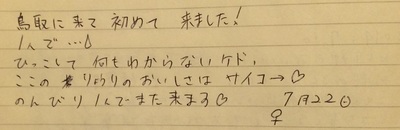 鳥取に来て 初めて 来ました!
1人で…
ひっこして 何もわからないケド、
ここの りのおいしさは サイコー→♡
のんびり 1人でまた来ます♡ 7月22㊐
♀